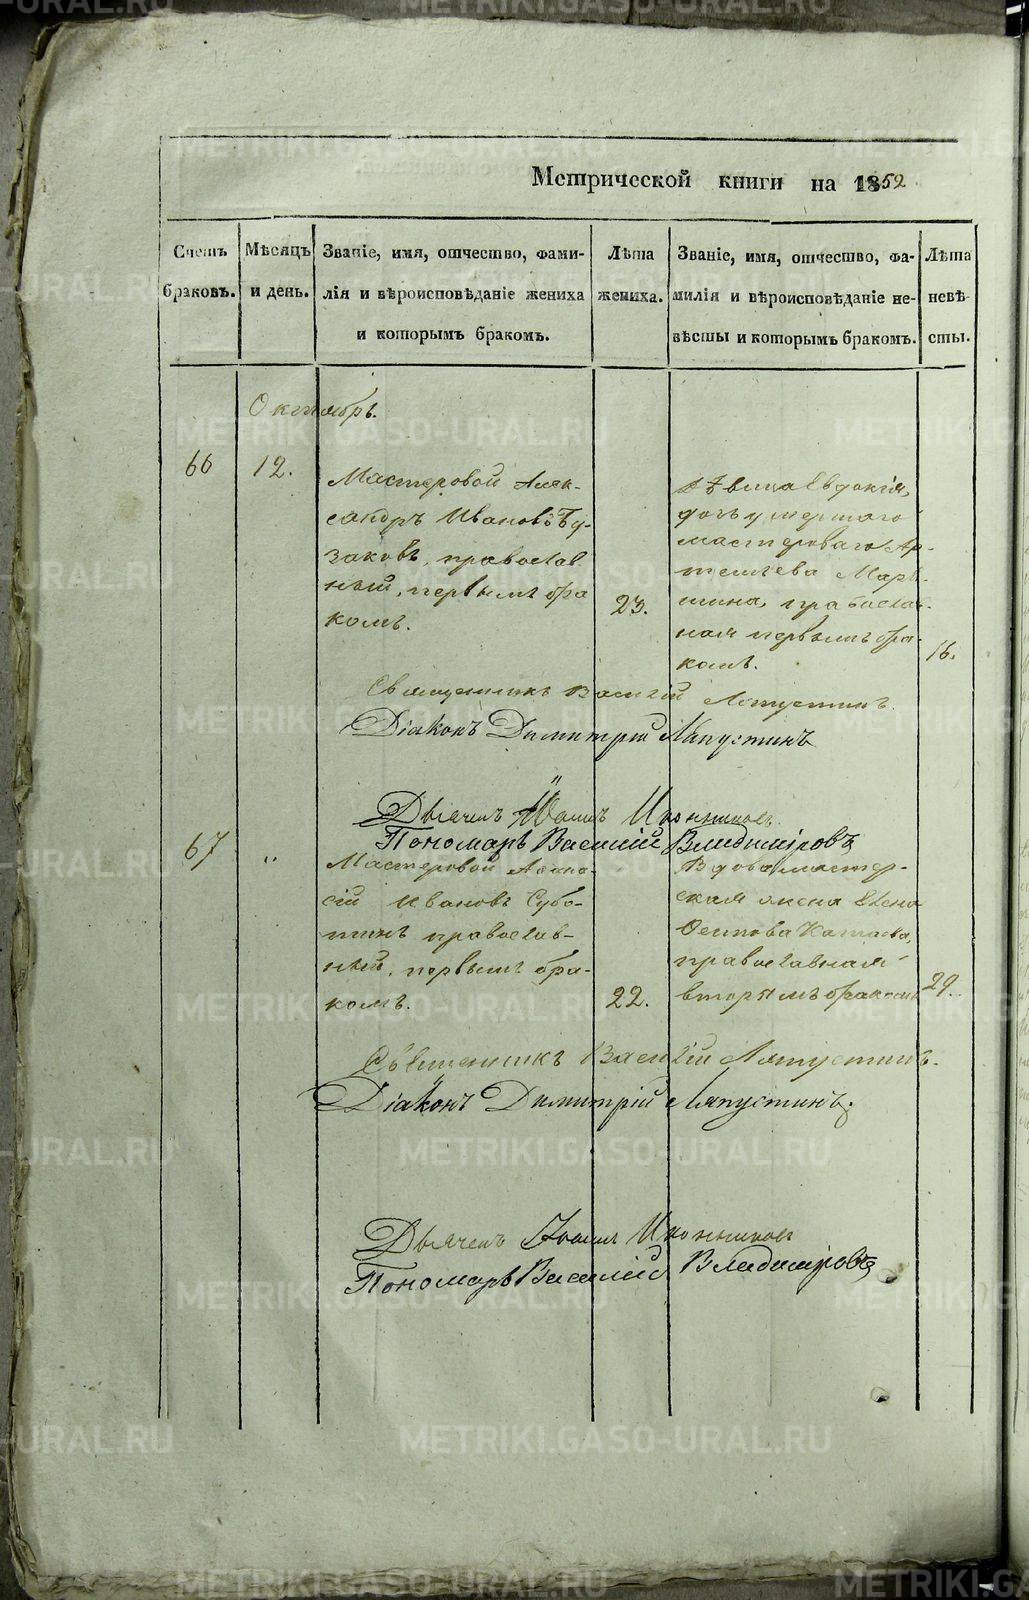 METRIKI.GASO-URAL.RU
Метрической книги на 1852
Счетъ браковъ.
Мѣсяцъ и день.
Званіе, имя, отчество, фами-
лія и вѣроисповѣданіе жениха
и которымъ бракомъ.
Лѣта жениха.
Званіе, имя, отчество, фа-
милія и вѣроисповѣданіе не-
вѣсты и которымъ бракомъ.
Лѣта невѣ-
сты.
Октябрь.
66
12.
Мастеровой Алек-
сандръ Ивановъ Бу-
заковъ, православ
ный, первымъ бра
комъ.
23.
дѣвица Евдокія,
дочь умершаго
мастероваго Ар-
темьева Март
шина, православ-
ная первымъ бра-
комъ.
16.
Священникъ Василій Ляпустинъ.
Діаконъ Димитрій Ляпустинъ
Дьячекъ Иконниковъ
Пономарь Василій Владиміровъ
67
"
Мастеровой Афона-
сій Ивановъ Субо-
тинъ православ-
ный, первымъ бра-
комъ.
22.
Вдова мастер-
ская жена Елена
Осипова Катаева,
православная
вторымъ бракомъ
29.
Священникъ Василій Ляпустинъ.
Діаконъ Димитрій Ляпустинъ.
Дьячекъ Иконниковъ
Пономарь Василій Владиміровъ